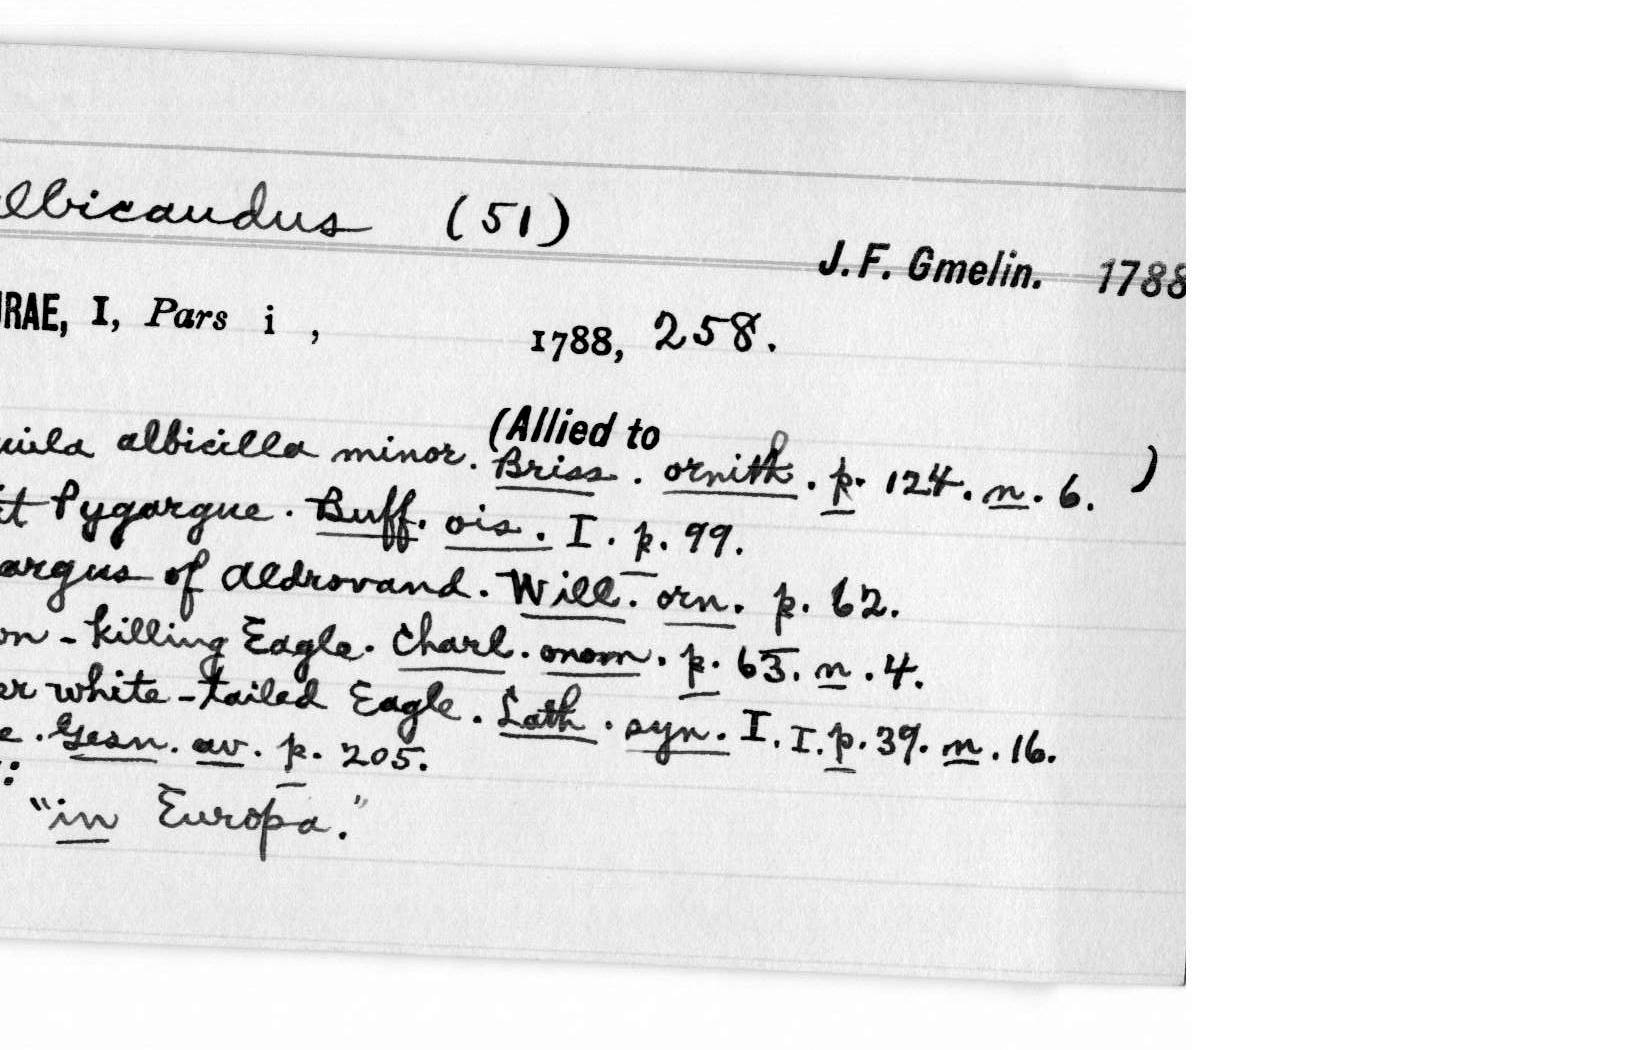 albicaudus (51)
J.F. Gmelin. 1788
URAE, I, Pars i , 1788, 258.
(Allied to )
uila albicilla minor. Briss. ornith. p. 124. n. 6.
it Pygargue. Buff. ois. I. p. 99.
argus of Aldrovand. Will. orn. p. 62.
on-killing Eagle. Charl. onom. p. 63. n. 4.
er white-tailed Eagle. Lath. syn. I. I. p. 39. n. 16.
e. Gesn. av. p. 205.
:
"in Europa."